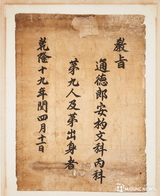 敎旨
通德郞安杓文科丙科
第九人及第出身者
乾隆十九年閏四月十二日